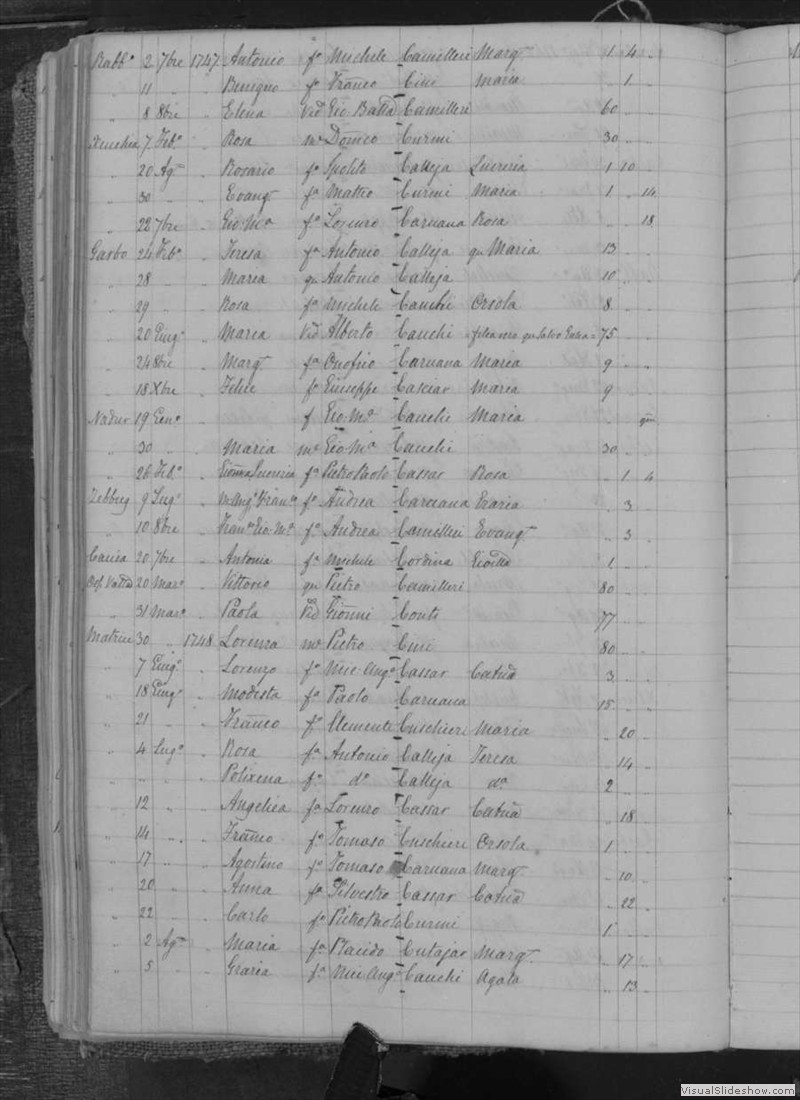 Rabbo 2 7bre 1747 Antonio fo Michele Camilleri Marga 1 4 ..
" 11 .. .. Benigno fo Franco Cini Maria .. 1 ..
" 8 8bre .. Elena Vid Gio Batta Camilleri 60
Xeuchia 7 Febo .. Rosa me Domco Curmi 30
" 20 Ago .. Rosario fo Ipolito Calleja Lucrezia 1 10 ..
" 30 .. .. Evanga fa Matteo Curmi Maria 1 .. 14
" 22 7bre .. Gio Ma fo Lorenzo Caruana Rosa .. .. 18
Garbo 24 Febo .. Teresa fa Antonio Calleja qm Maria 13
" 28 .. .. Maria qm Antonio Calleja 10
" 29 .. Rosa fa Michele Cauchi Orsola 8
" 20 Giugo .. Maria Vid Alberto Cauchi 75
" 24 8bre .. Marga fa Onofrio Caruana Maria 9
" 18 Xbre .. Felice fo Giuseppe Casciar Maria 9
Nadur 19 Geno f Gio: Ma Cauchi Maria
" 30 .. .. Maria me Gio Ma Cauchi 30
" 26 Febo .. fa Pietro Paolo Cassar Rosa .. 1 4
Zebbug 9 Lugo .. fo Andrea Grazia .. 3 ..
" 10 8bre .. Frano Gio: Ma fo Andrea Camilleri Evanga .. 3
20 7bre .. Antonia fa Michele Cordina 1
20 Marzo .. Vittorio qm Pietro Camilleri 80
" 31 Marzo .. Paola Vid Gionni Conti 77
Matrice 30 .. 1748 Lorenza me Pietro Cini 80
" 7 Giugo .. Lorenzo fo Mic: Ango Cassar Catna 3
" 18 Giugo .. Modesta fa Paolo Caruana 15
" 21 .. .. Franco fo Clemente Cuschieri Maria .. 20
" 4 Lugo .. Rosa fa Antonio Calleja Teresa .. 14
" .. .. Polixena fa do Calleja da 2
" 12 .. Angelica fa Lorenzo Cassar Catna .. 18
" 14 .. .. Franco fo Tomaso Cuschieri Orsola 1
" 17 .. Agostino fo Tomaso Caruana Marga .. 10 ..
" 20 .. Anna fa Silvestro Cassar Catna .. 22
" 22 .. Carlo fo Pietro Paolo Curmi 1
" 2 Ago .. Maria fa Placido Cutajar Marga .. 17 ..
" 5 .. .. Grazia fa Mic: Ango Cauchi Agata .. 13
VisualSlideshow.com